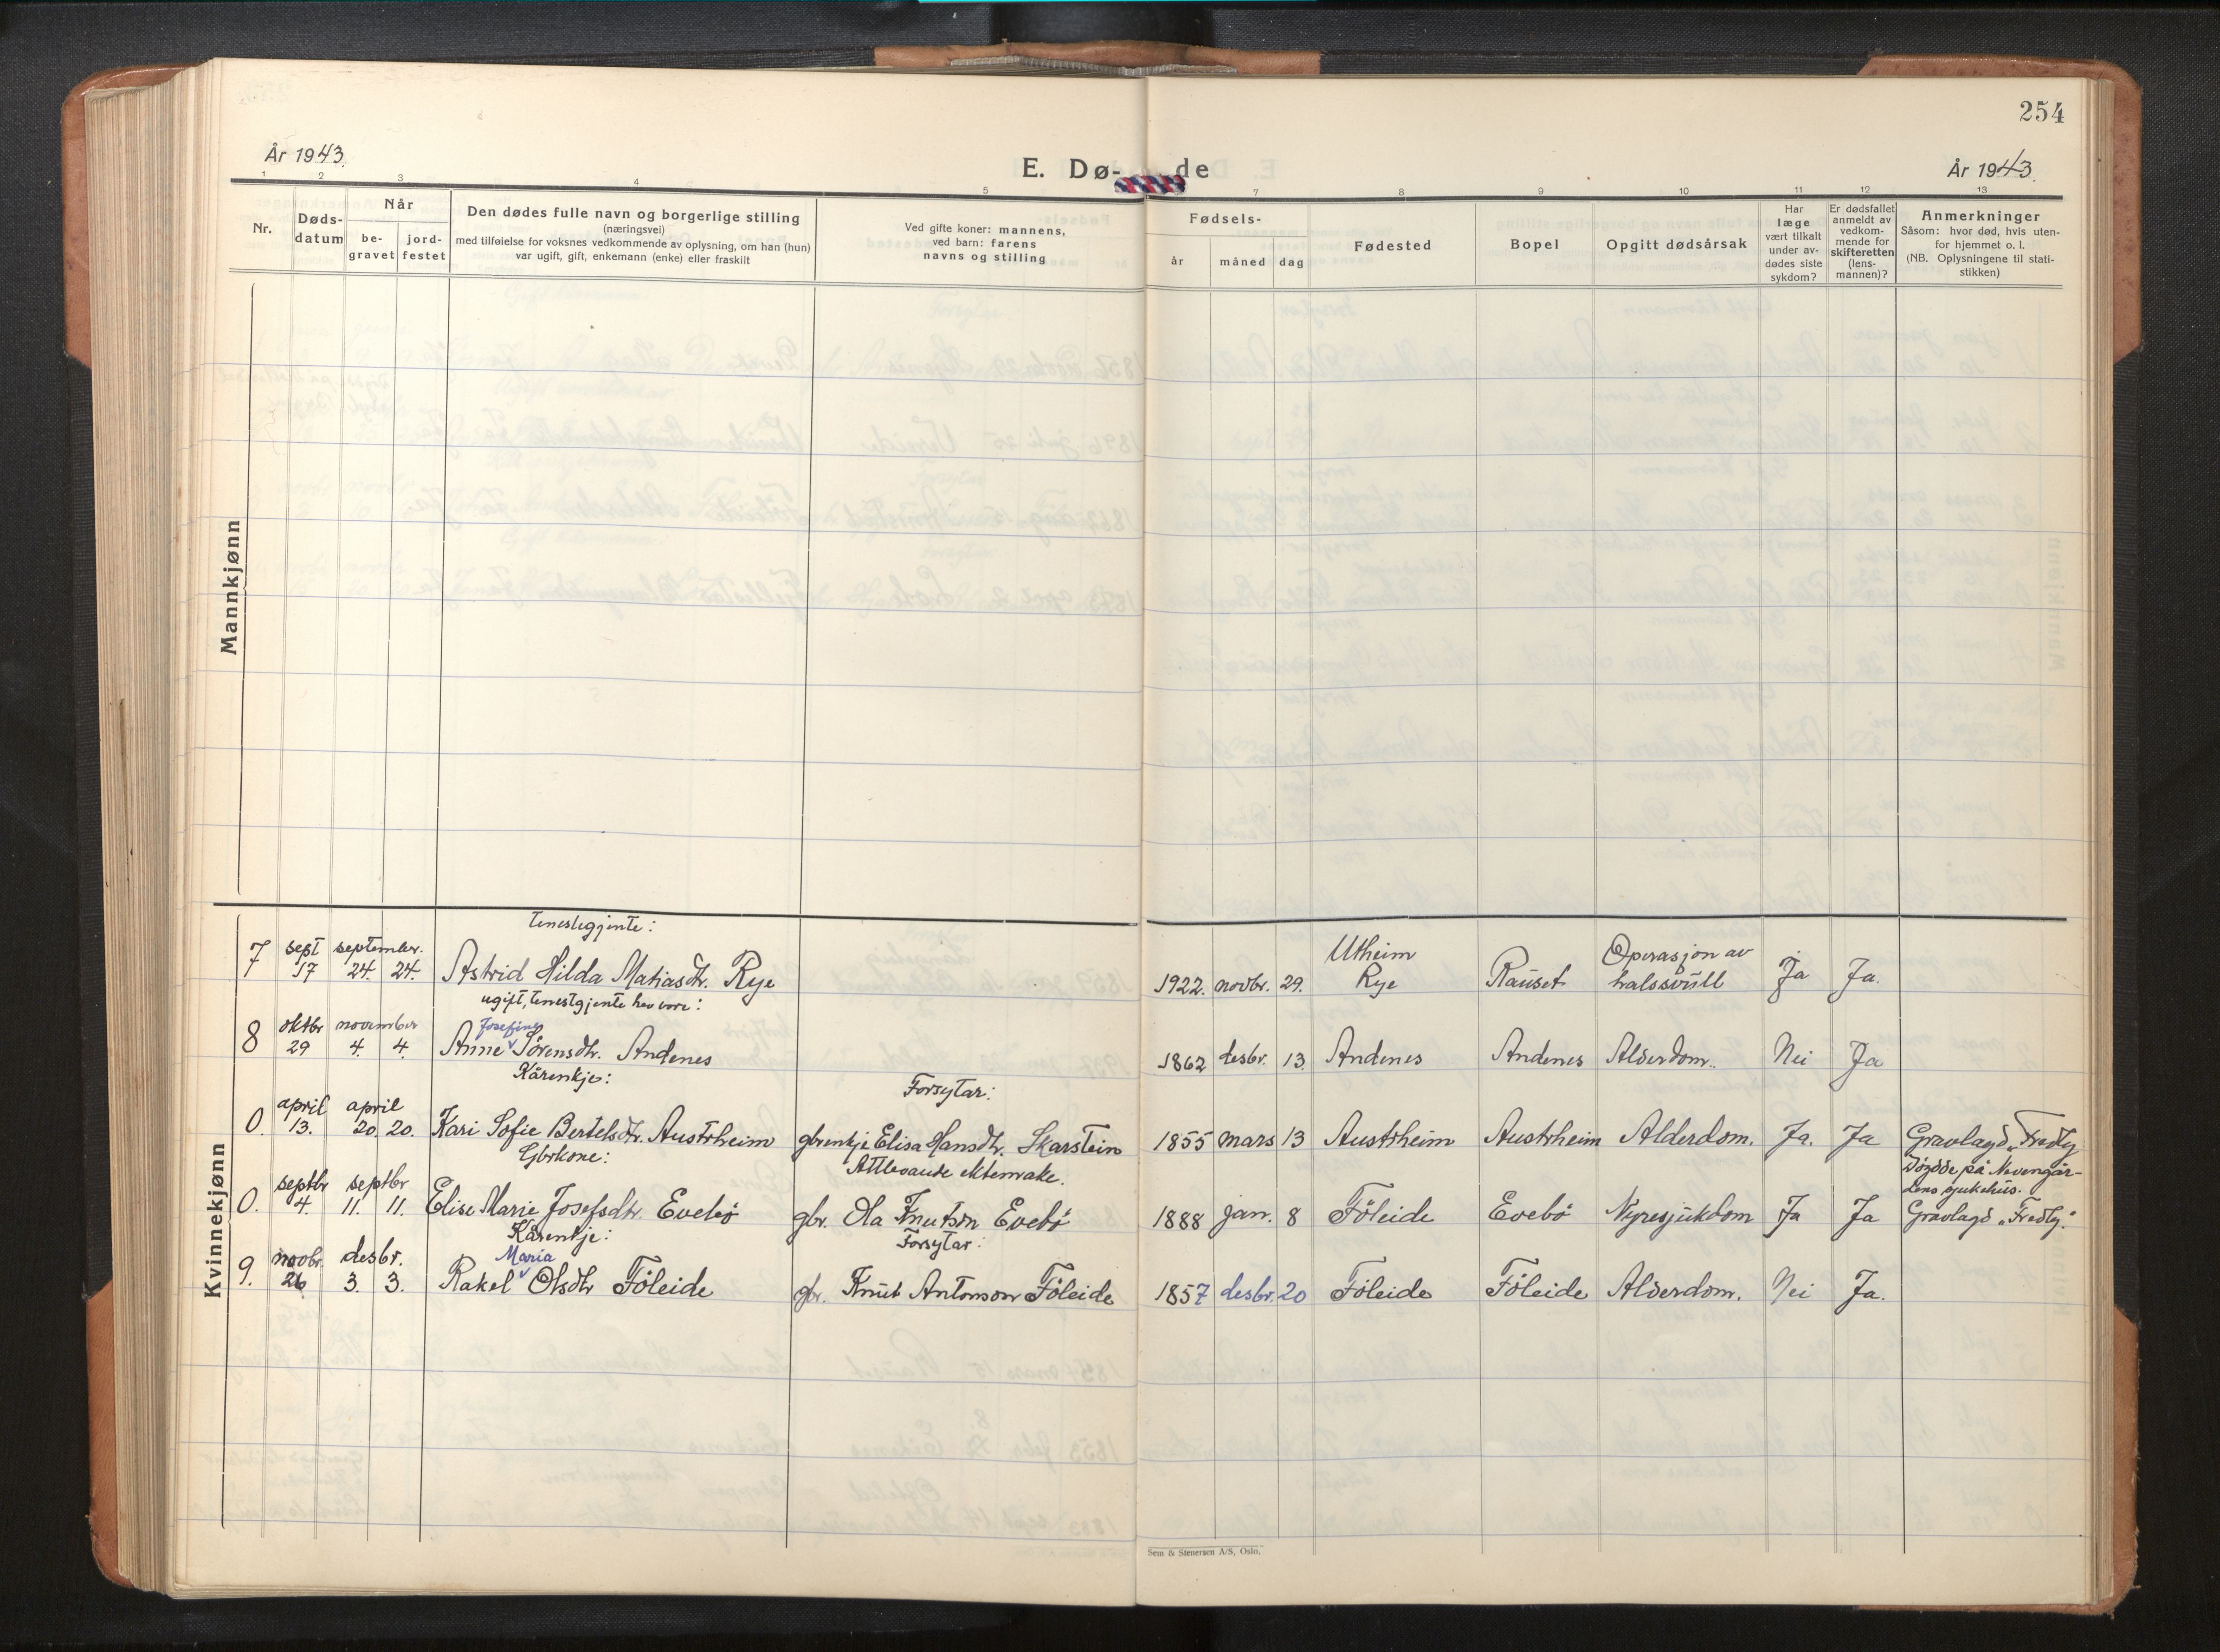 254
År 1943.
E. Dø-
de
År 1943.
1 2 3 4 5 7 8 9 10 11 12 13
Nr.
Døds-
datum
Når
be-
gravet
jord-
festet
Den dødes fulle navn og borgerlige stilling
(næringsvei)
med tilføielse for voksnes vedkommende av oplysning, om han (hun)
var ugift, gift, enkemann (enke) eller fraskilt
Ved gifte koner: mannens,
ved barn: farens
navns og stilling
Fødsels-
år
måned
dag
Fødested
Bopel
Opgitt dødsårsak
Har
læge
vært tilkalt
under av-
dødes siste
sykdom?
Er dødsfallet
anmeldt av
vedkom-
mende for
skifteretten
(lens-
mannen)?
Anmerkninger
Såsom: hvor død, hvis uten-
for hjemmet o. l.
(NB. Oplysningene til stati-
stikken)
Mannkjønn
Kvinnekjønn
tenestegjente:
7 sept 17 september. 24. 24. Astrid Hilda Matiasdtr. Rye 1922. novbr. 29. Utheim Rye Rauset Operasjon av halssvull Ja Ja.
ugift, tenestgjente hev vore:
8 oktbr 29 november 4. 4. Anne Josefine Sørensdtr. Andenes 1862 desbr. 13. Andenes Andenes Alderdom. Nei Ja
Kårenkje:
Forsytar:
0. april 13. april 20. 20. Kari Sofie Bertelsdtr. Austrheim gbrenkje Elisa Hansdtr. Skarstein 1855 mars 13 Austrheim Austrheim Alderdom. Ja. Ja Gravlagd „Fredly
Gbrkone:
Attlevande ektemake.
Døydde på Nevengår-
dens sjukehus.
0. septbr 4. septbr 11. 11. Elise Marie Josefsdtr. Evebø gbr. Ola Knutson Evebø 1888 jan. 8 Føleide Evebø Nyresjukdom Ja Ja Gravlagd „Fredly."
Kårenkje:
Forsytar:
9. novbr. 26 desbr. 3. 3. Rakel Maria Olsdtr Føleide gbr. Knut Antonson Føleide 1857 desbr. 20 Føleide Føleide Alderdom. Nei Ja.
Sem & Stenersen A/S, Oslo.